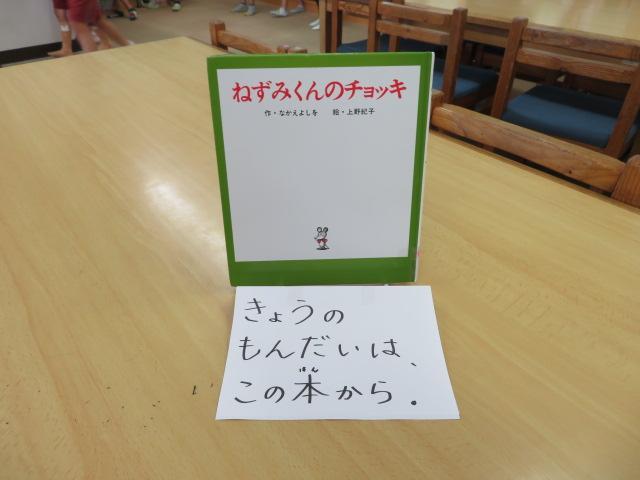 ねずみくんのチョッキ
作・なかえよしを 絵・上野紀子
きょうの
もんだいは、
この本から.
ほん